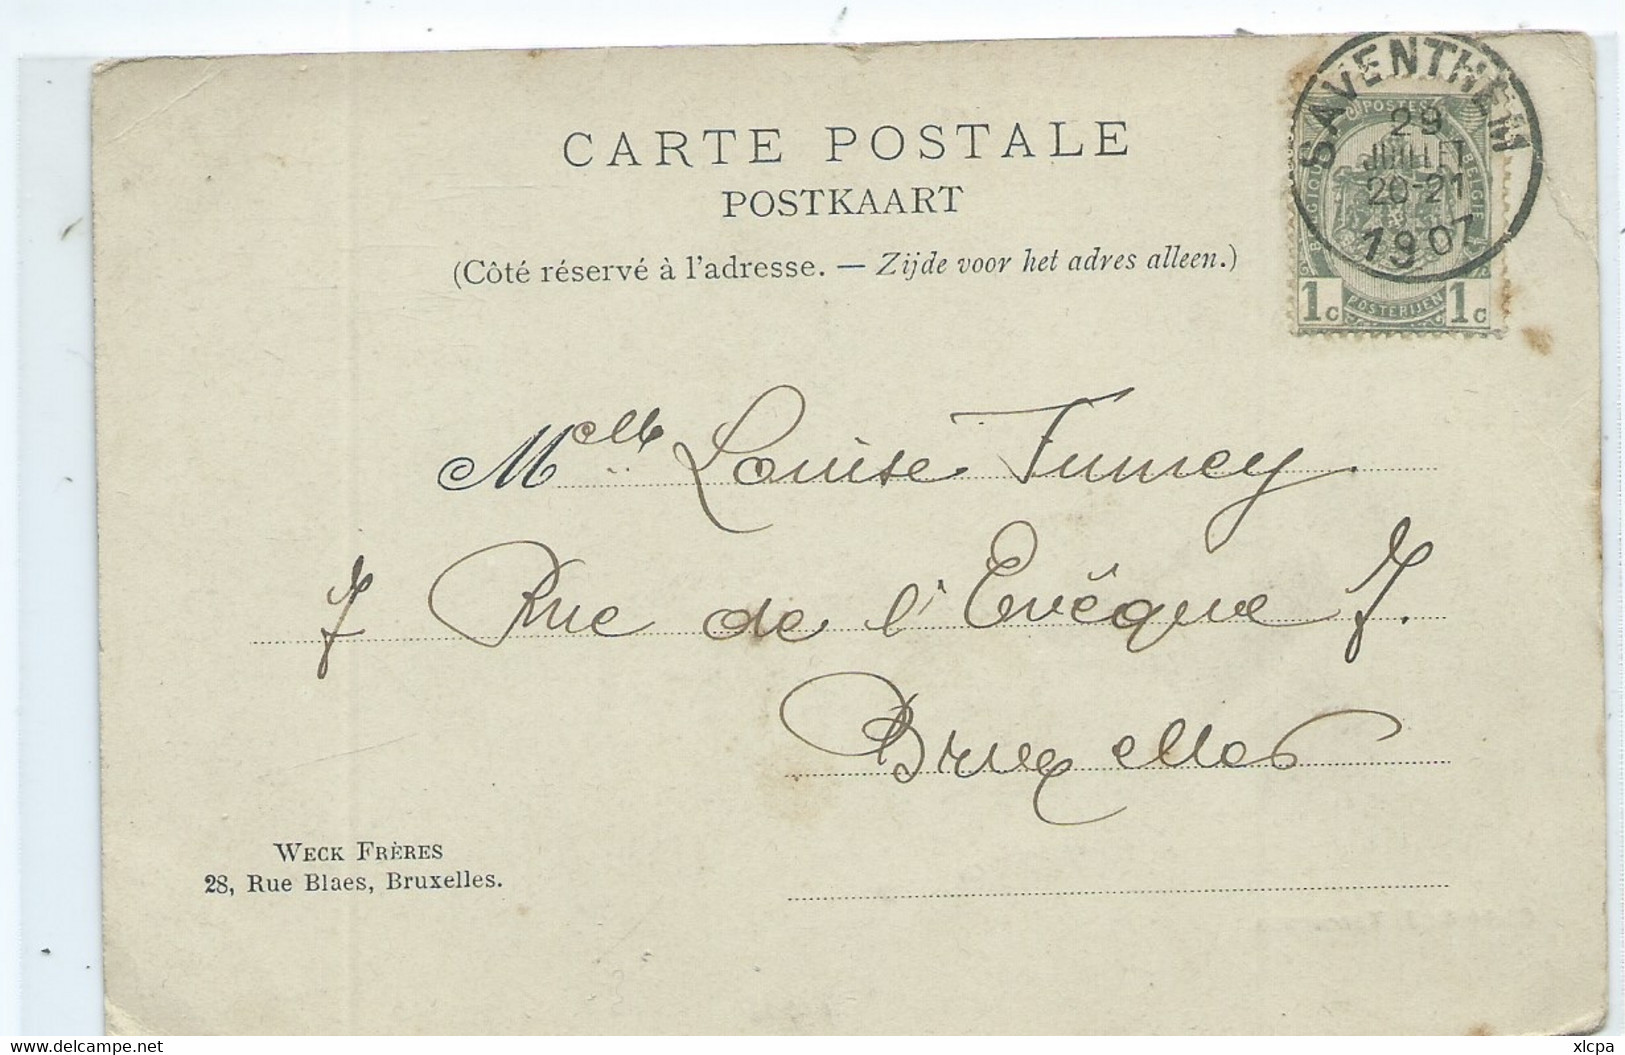 CARTE POSTALE
POSTKAART
(Côté réservé à l'adresse. — Zijde voor het adres alleen.)
SAVENTHEM
29
JUILLET
20-21
1907
POSTES
BELGIE
POSTERIJEN
1c 1c
Melle Louise
7 Rue de l'Evêque 7.
Bruxelles
WECK FRÈRES
28, Rue Blaes, Bruxelles.
www.delcampe.net
xlcpa